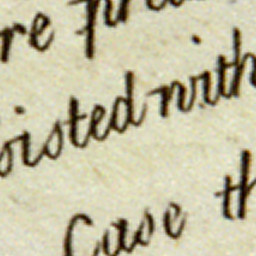 re
oisted with
Case th